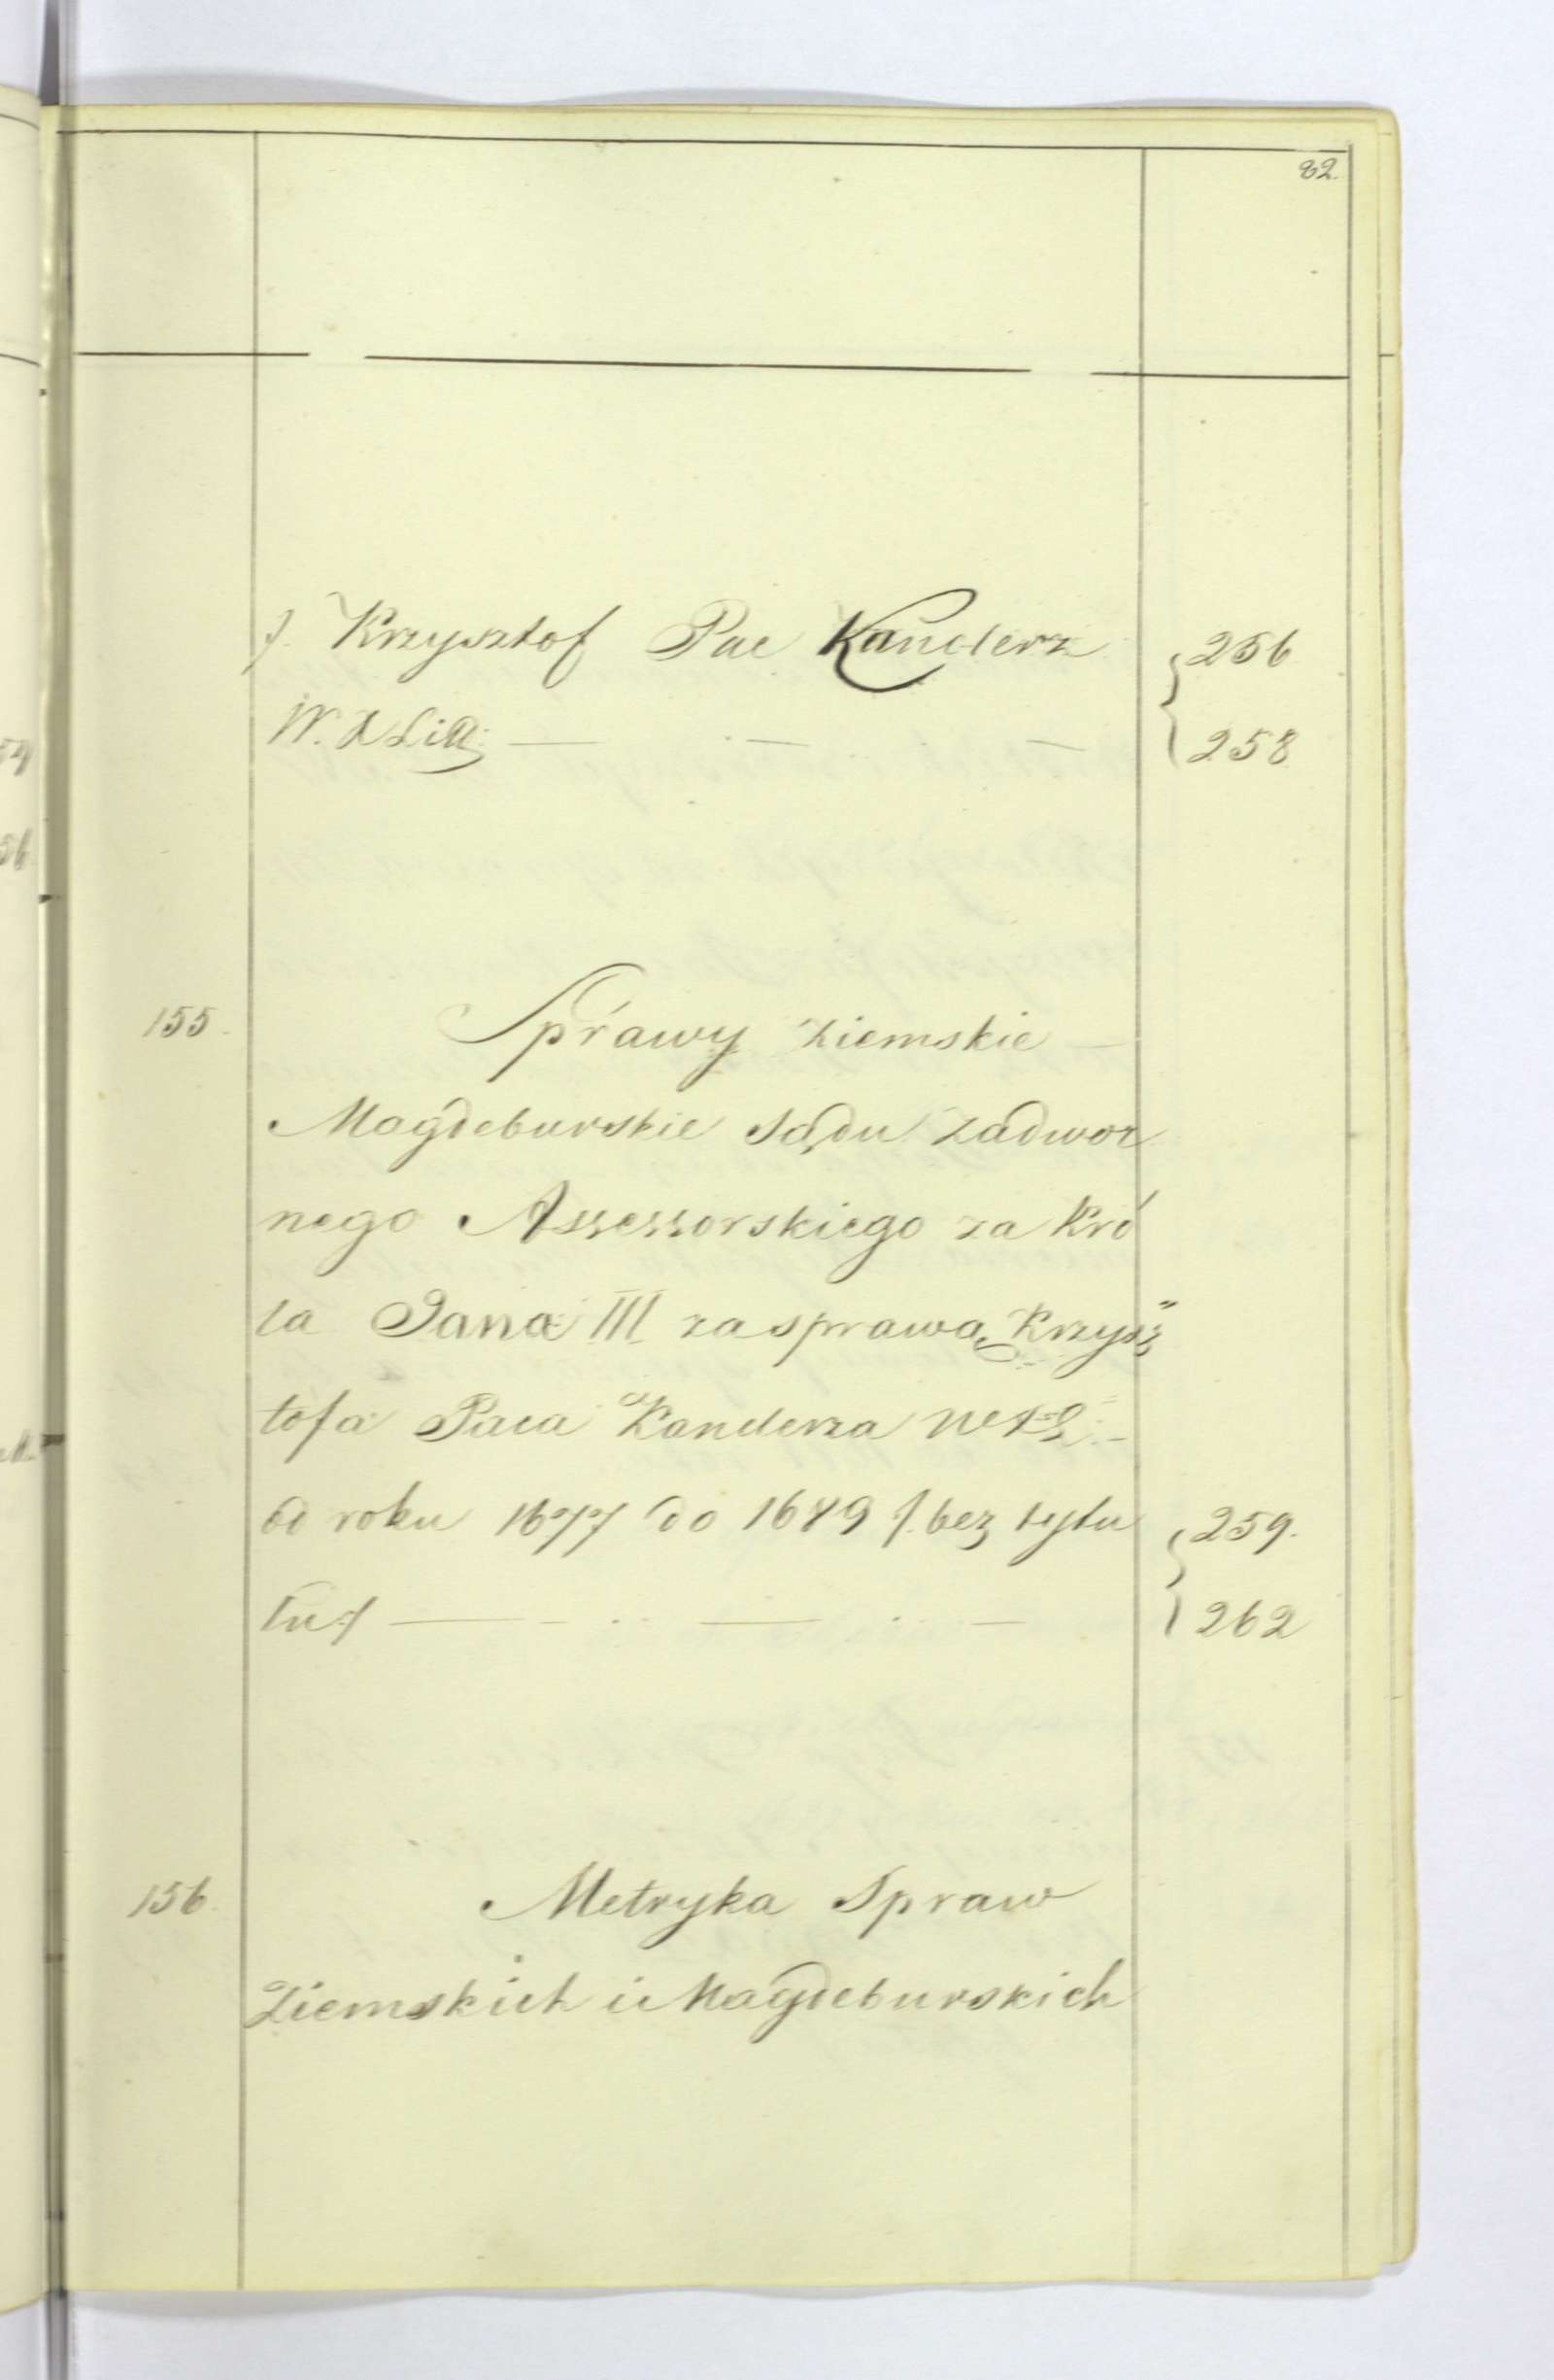 82.
/. Krzysztof Pac Kanclerz 256
W. X Litt: 258
155. Sprawy Ziemskie
Magdeburskie Sądu Zadwor
nego Assessorskiego za Kró
la Jana III za sprawą Krzysz
tofa Paca Kanclerza
od roku 1677 do 1679 /. bez tytu 259.
łu ./ 262
156. Metryka Spraw
Ziemskich i Magdeburskich